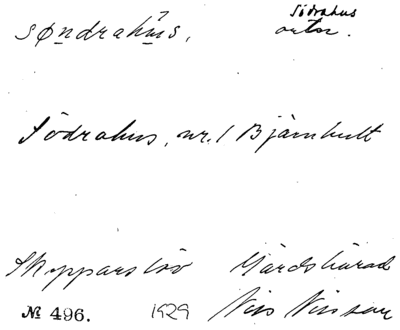 søndrahūs, Södrahus
outor.
Södrahus, nr. 1 Bjärnhult
Skepparslöv Gärds härad
№ 496. 1929 Nils Nilsson